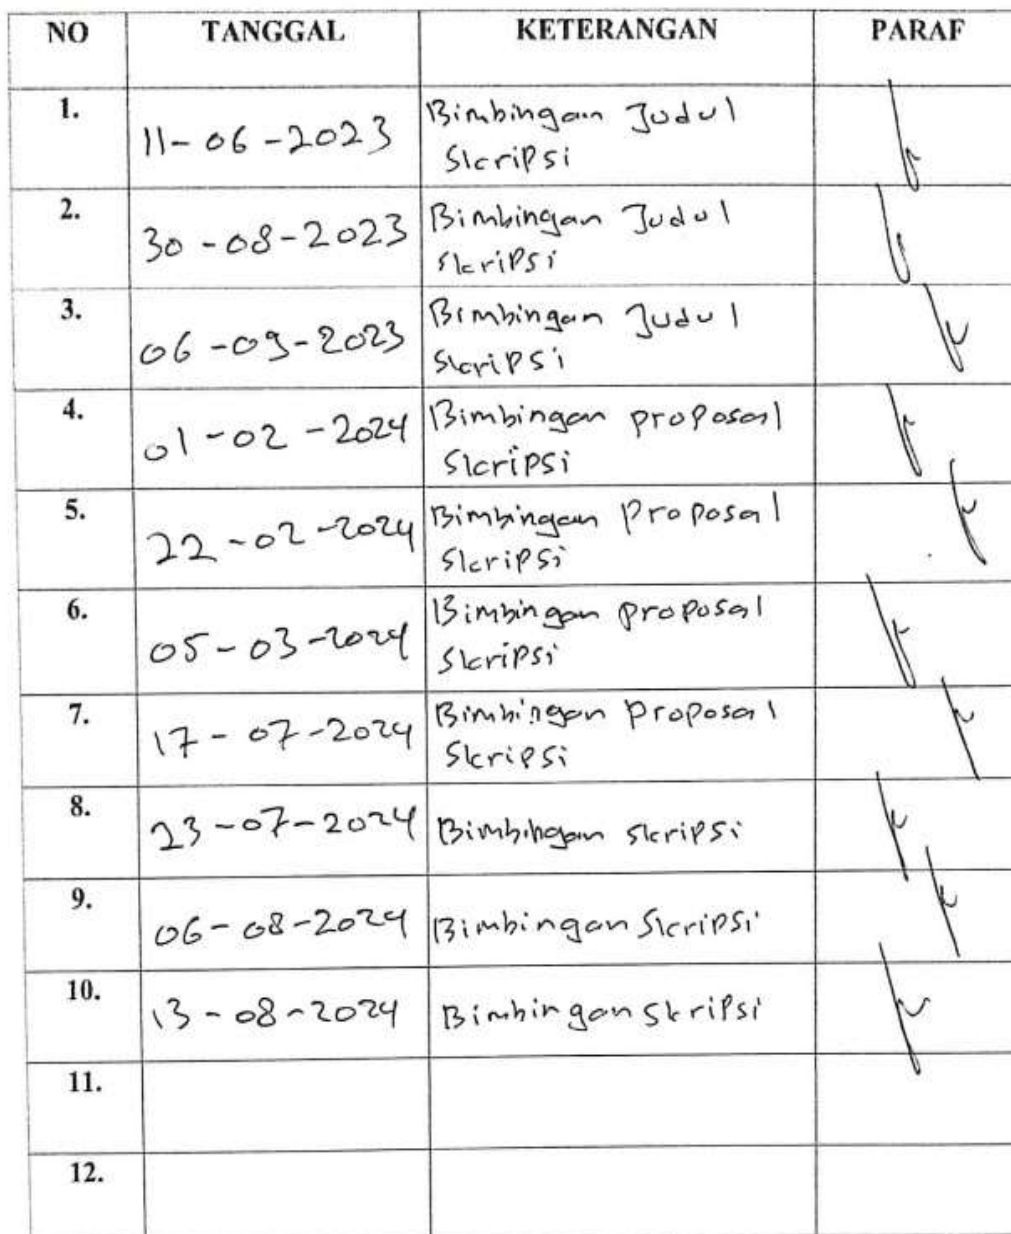 NO TANGGAL KETERANGAN PARAF
1. 11-06-2023 Bimbingan Judul
Skripsi
2. 30-08-2023 Bimbingan Judul
Skripsi
3. 06-09-2023 Bimbingan Judul
Skripsi
4. 01-02-2024 Bimbingan proposal
Skripsi
5. 22-02-2024 Bimbingan Proposal
Skripsi
6. 05-03-2024 Bimbingan proposal
Skripsi
7. 17-07-2024 Bimbingan Proposal
Skripsi
8. 23-07-2024 Bimbingan skripsi
9. 06-08-2024 Bimbingan Skripsi
10. 13-08-2024 Bimbingan Skripsi
11.
12.